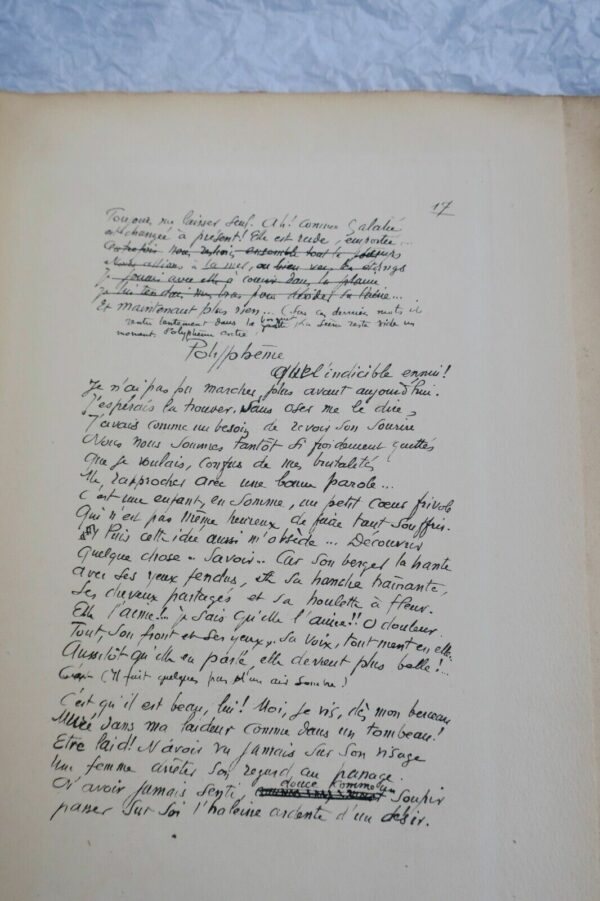 17
Toujours me laisser seul. Ah! Comme Galatée
est changée à présent! Elle est rude, emportée...
Autrefois nous restions ensemble tout le jour
Nous allions à la mer, ou bien vers les étangs
Je jouais avec elle à courir dans la plaine
Je lui tendais mes bras pour
Et maintenant plus rien... (Sur ces derniers mots il
rentre lentement dans le La scène reste vide un
moment. Polyphème entre)
Polyphème
Quel indicible ennui!
Je n'ai pas pu marcher plus avant aujourd'hui.
J'espérais la trouver. Sans oser me le dire,
J'avais comme un besoin de revoir son sourire
Nous nous sommes tantôt si froidement quittés
Que je voulais, confus de mes brutalités
Me rapprocher avec une bonne parole...
C'est une enfant, en somme, un petit cœur frivole
Qui n'est pas même heureux de faire tant souffrir.
Puis cette idée aussi m'obsède... Découvrir
Quelque chose.. Savoir.. Car son berger la hante
avec ses yeux fendus, sa hanche traînante,
Ses cheveux partagés et sa houlette à fleur.
Elle l'aime!.. je sais qu'elle l'aime!! O douleur.
Tout, son front et ses yeux, sa voix, tout ment en elle..
Aussitôt qu'elle en parle, elle devient plus belle!...
(Il fait quelques pas d'un air sombre)
C'est qu'il est beau, lui! Moi, je vis, dès mon berceau
Muré dans ma laideur comme dans un tombeau!
Etre laid! N'avoir vu jamais sur son visage
Une femme arrêter son regard au passage.
N'avoir jamais senti, douce comme un soupir
passer sur soi l'haleine ardente d'un désir.